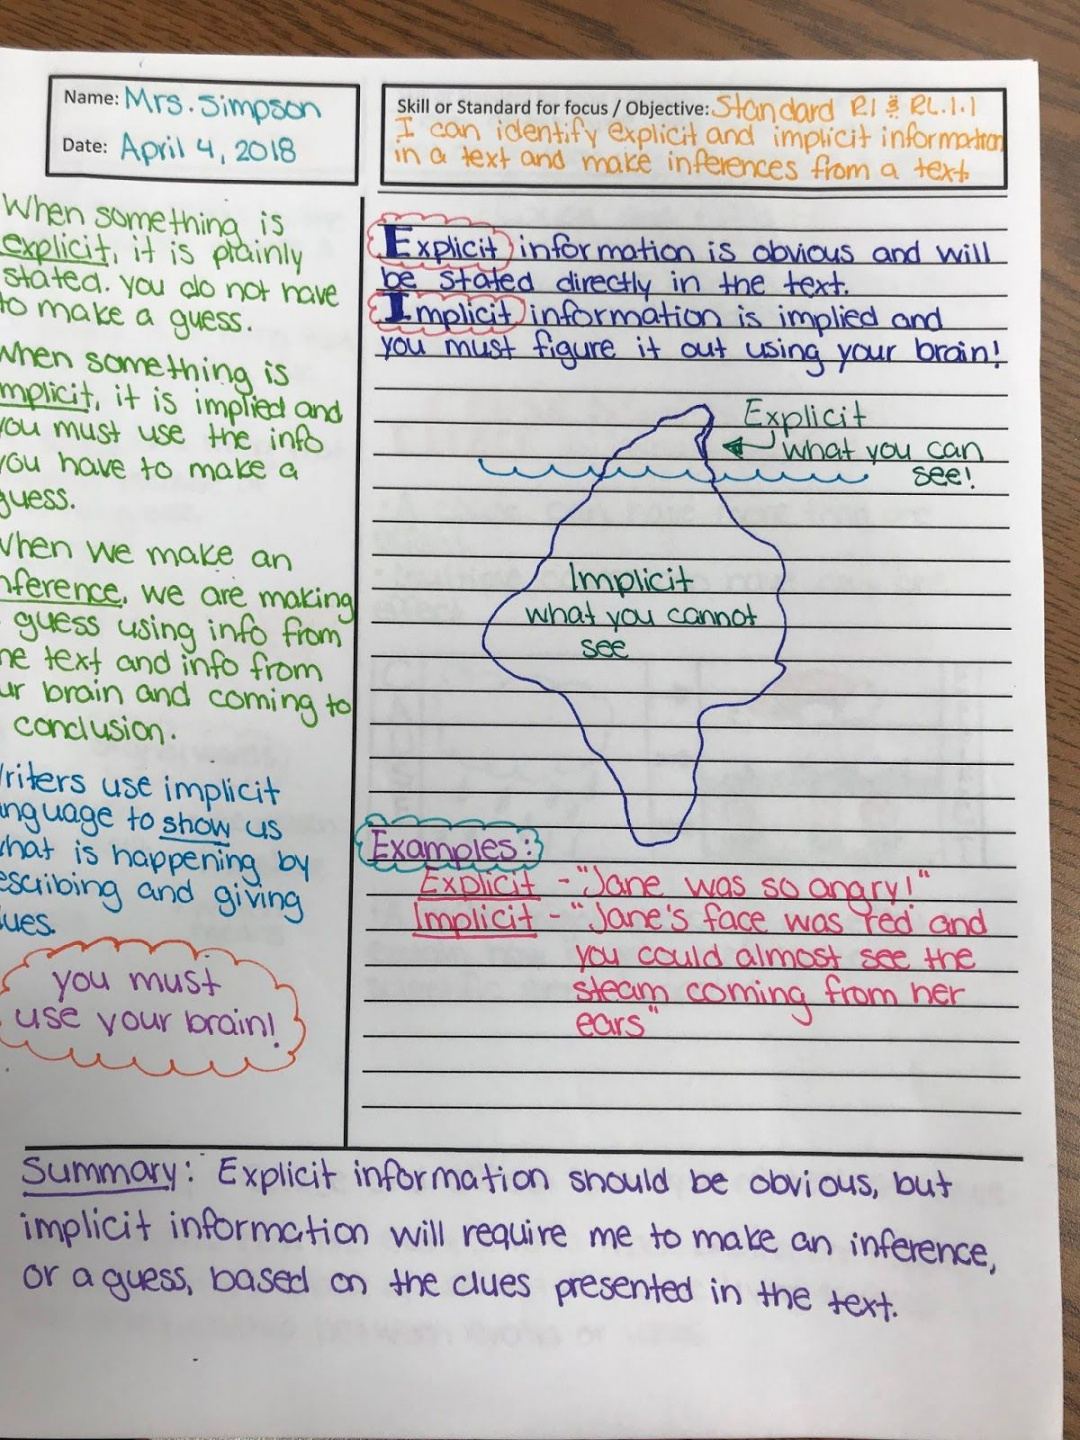 Name: Mrs. Simpson
Date: April 4, 2018
Skill or Standard for focus / Objective: Standard RI & RL.1.1
I can identify explicit and implicit information
in a text and make inferences from a text.
When something is
explicit, it is plainly
stated. you do not have
to make a guess.
When something is
implicit, it is implied and
you must use the info
you have to make a
guess.
When we make an
nference, we are making
guess using info from
he text and info from
ur brain and coming to
conclusion.
riters use implicit
anguage to show us
what is happening by
escribing and giving
lues.
you must
use your brain!
Explicit information is obvious and will
be stated directly in the text.
Implicit information is implied and
you must figure it out using your brain!
Explicit
what you can
see!
Implicit
what you cannot
see
Examples:
Explicit - "Jane was so angry!"
Implicit - "Jane's face was red and
you could almost see the
steam coming from her
ears"
Summary: Explicit information should be obvious, but
implicit information will require me to make an inference,
or a guess, based on the clues presented in the text.